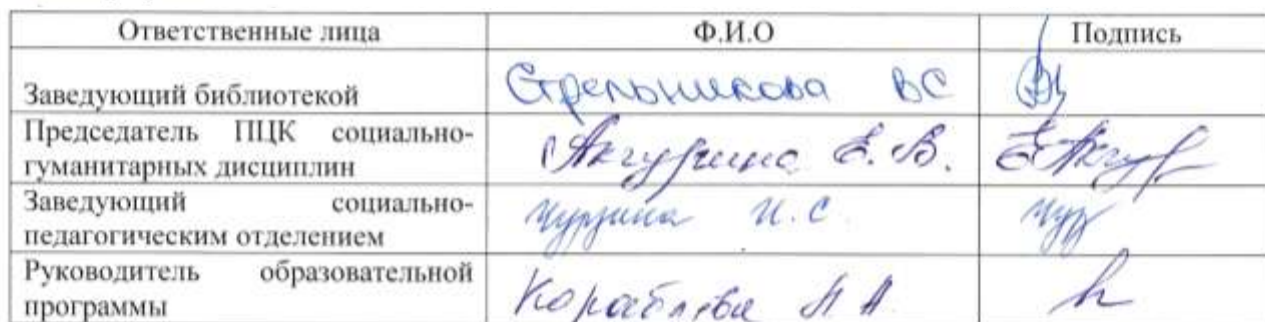 Ответственные лица Ф.И.О Подпись
Заведующий библиотекой Стрельникова ВС
Председатель ПЦК социально-
гуманитарных дисциплин Е.В.
Заведующий социально-
педагогическим отделением И.С.
Руководитель образовательной
программы Кораблёва